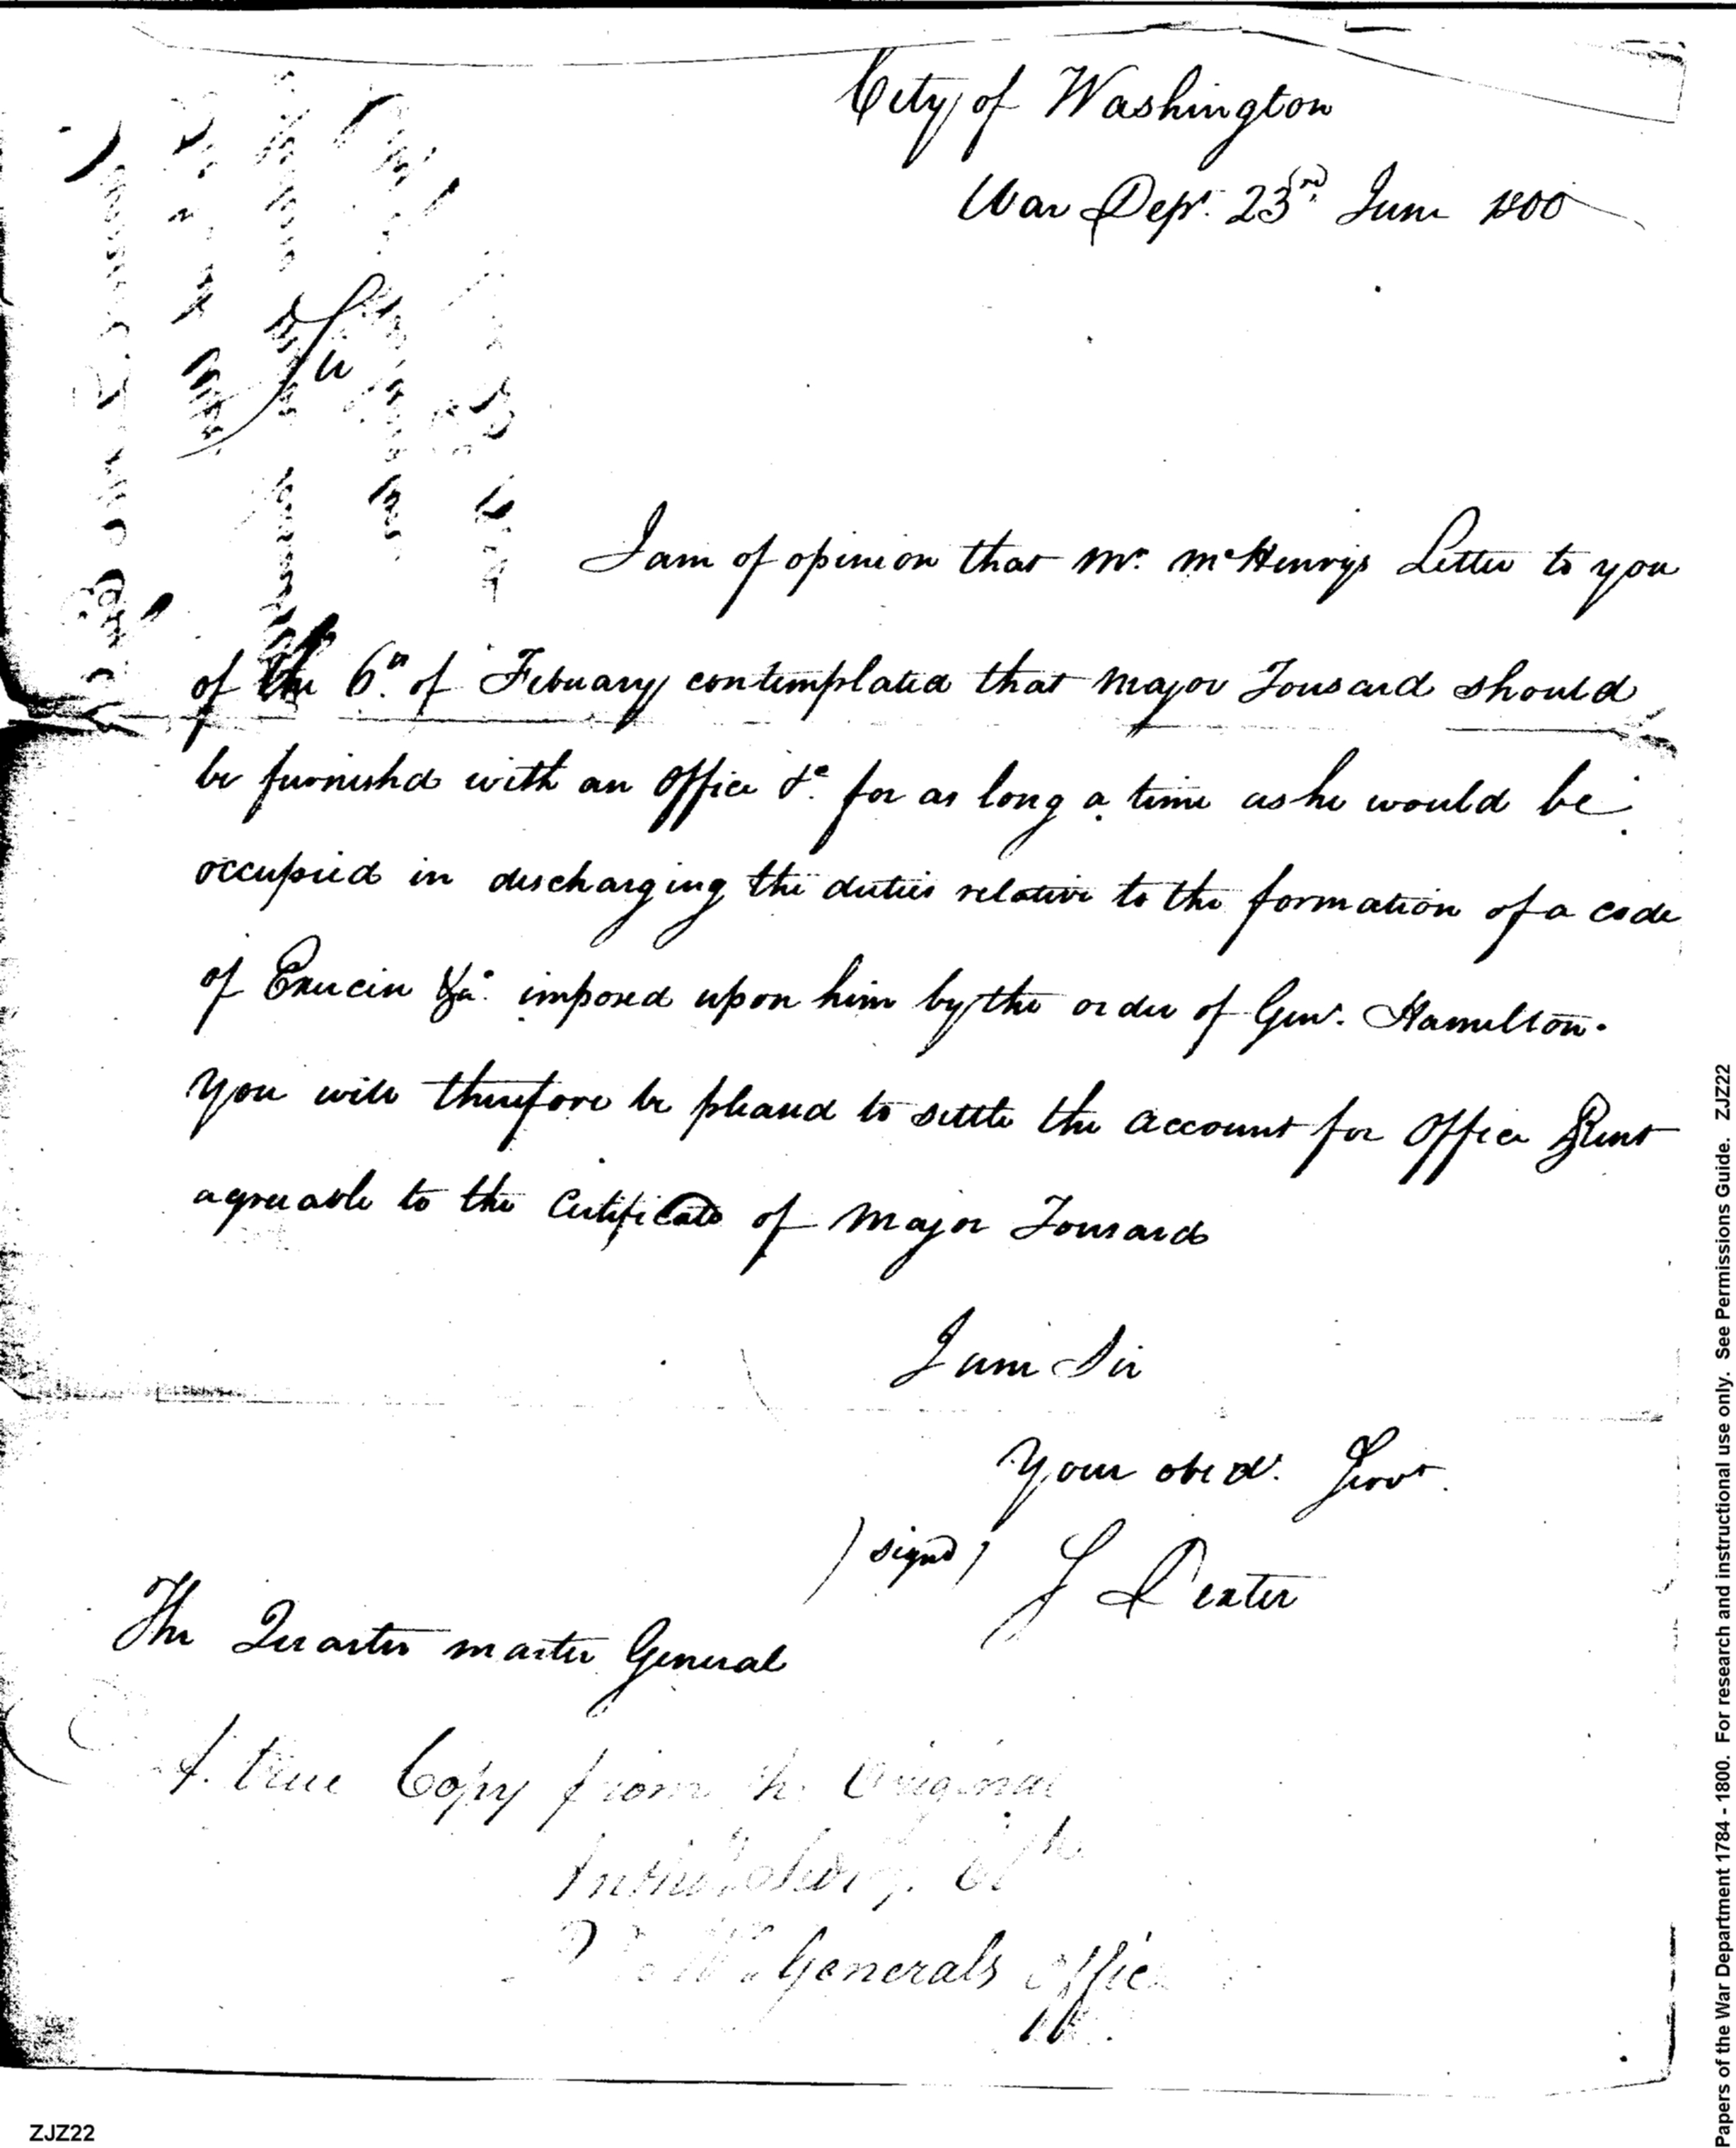 City of Washington
War Dept. 23rd June 1800
Sir
I am of opinion that Mr. McHenrys Letter to you
of the 6th of Febuary contemplated that Major Tousard should
be furnishd with an Office &c. for as long a time as he would be
occupied in discharging the duties relative to the formation of a code
of Exercise &ca. imposed upon him by the order of Genl. Hamilton.
You will therefore be pleased to settle the account for Office Rent
agreeable to the Certificate of Major Tousard
I am Sir
Your obedt. Servt.
(signd) S Dexter
The Quarter master General
A. true Copy from the Original
Generals Office
Papers of the War Department 1784 - 1800. For research and instructional use only. See Permissions Guide. ZJZ22
ZJZ22